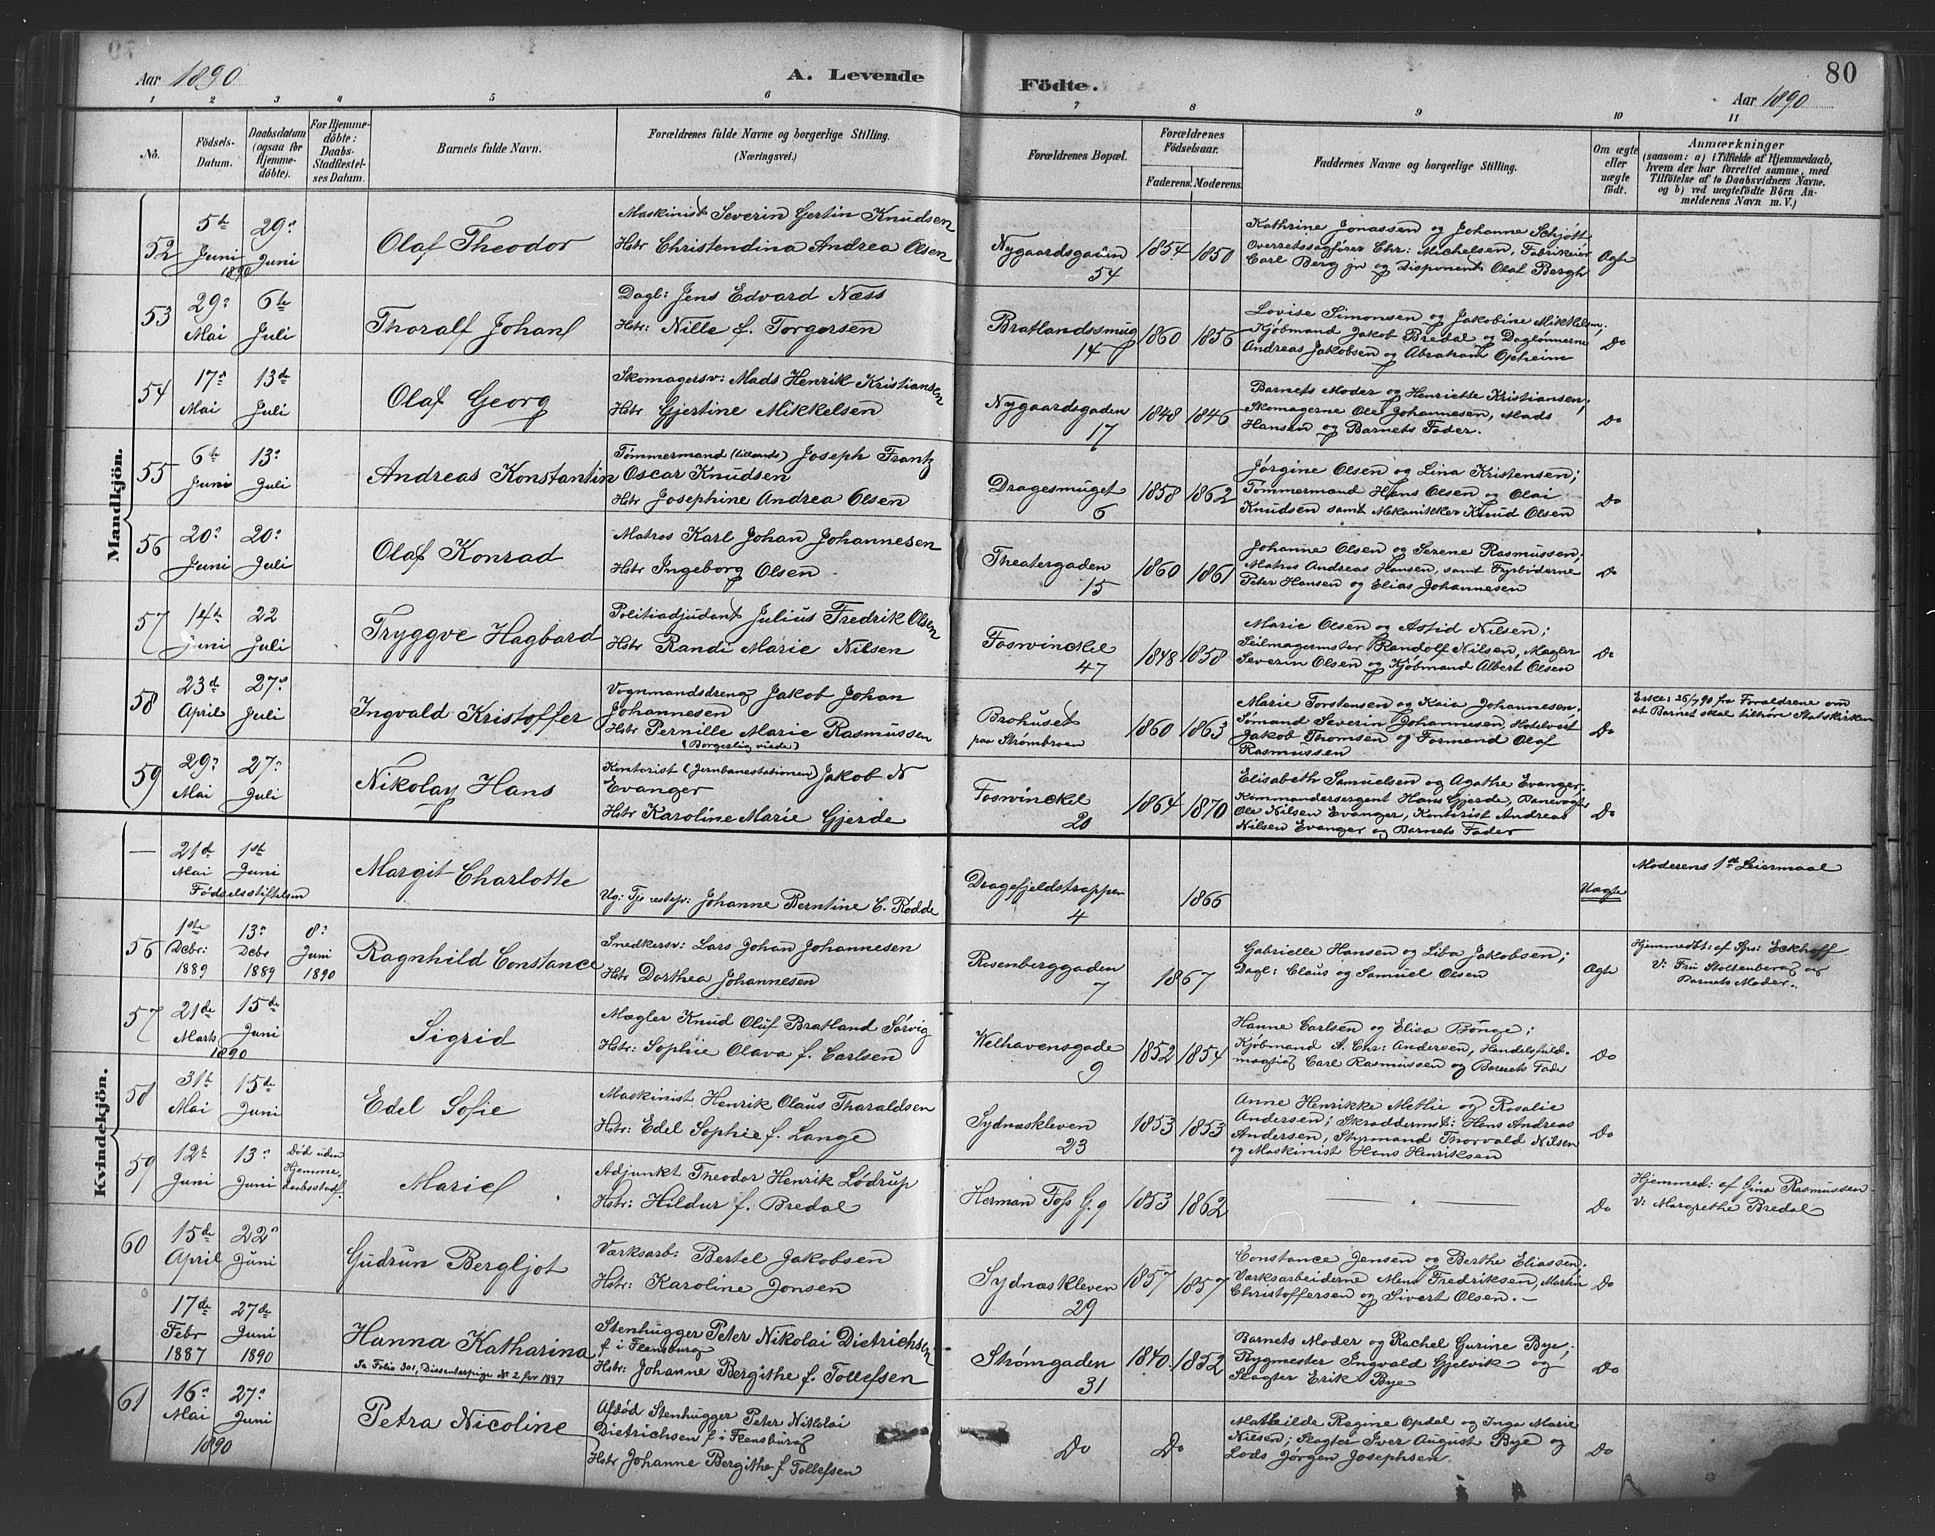 Aar 1890
A. Levende
Födte.
80
Aar 1890
1 2 3 4 5 6 7 8 9 10 11
No.
Födsels-
Datum.
Daabsdatum
(ogsaa for
Hjemme-
döbte).
For Hjemme-
döbte:
Daabs-
Stadfæstel-
ses Datum.
Barnets fulde Navn.
Forældrenes fulde Navne og borgerlige Stilling.
(Næringsvei.)
Forældrenes Bopæl.
Forældrenes
Födselsaar.
Faderens. Moderens.
Faddernes Navne og borgerlige Stilling.
Om ægte
eller
uægte
födt.
Anmærkninger
(saasom: a) i Tilfælde af Hjemmedaab,
hvem der har forrettet samme, med
Tilföielse af to Daabsvidners Navne,
og b) ved uægtefödte Börn An-
melderens Navn m. V.)
Mandkjön.
52
5te Juni 1890
29de Juni
Olaf Theodor
Maskinist Severin Gertin Knudsen
Hstr Christendina Andrea Olsen
Nygaardsgaden
54
1854 1850
Kathrine Jonassen og Johanne Schjött
Overretssagförer Chr: Michelsen, Fabrikeier
Carl Berg jr og Disponent Olaf Bergh
Ægte
53
29de Mai
6te Juli
Thoralf Johan
Dagl: Jens Edvard Næss
Hstr: Nille f. Torgersen
Bratlandssmug
14
1860 1856
Lovise Simonsen og Jakobine Mikkelsen.
Kjöbmand Jakob Bredal og Daglönnerne
Andreas Jakobsen og Abraham Opheim
Do
54
17de Mai
13de Juli
Olaf Georg
Skomagersv: Mads Henrik Kristiansen
Hstr Gjertine Mikkelsen
Nygaardsgaden
17
1848 1846
Barnets Moder og Henriette Kristiansen;
Skomagerne Ole Johannesen, Mads
Hansen og Barnets Fader.
Do
55
6te Juni
13de Juli
Andreas Konstantin
Tömmermand (tillands) Joseph Frantz
Oscar Knudsen
Hstr Josephine Andrea Olsen
Dragesmuget
6
1858 1862
Jörgine Olsen og Lina Kristensen;
Tömmermand Hans Olsen og Olai
Knudsen samt Mekanikker Knud Olsen
Do
56
20de Juni
20de Juli
Olaf Konrad
Matros Karl Johan Johannesen
Hstr Ingeborg Olsen
Theatergaden
15
1860 1861
Johanne Olsen og Serene Rasmussen;
Matros Andreas Hansen, samt Fyrböderne
Peter Hansen og Elias Johannesen
Do
57
14te Juni
22 Juli
Tryggve Hagbard
Politiadjudant Julius Fredrik Olsen
Hstr Randi Marie Nilsen
Foswinckel
47
1848 1858
Marie Olsen og Astid Nilsen;
Seilmagermster Randolf Nilsen, Mægler
Severin Olsen og Kjöbmand Albert Olsen
Do
58
23de April
27de Juli
Ingvald Kristoffer
Vognmandsdreng Jakob Johan
Johannesen
Hstr Pernille Marie Rasmussen
(Borgerlig viede)
Brohuset
paa Strömbroen
1860 1863
Marie Torstensen og Kaia Johannesen.
Sömand Severin Johannesen, Hotelvært
Jakob Thomsen og Formand Olaf
Rasmussen
Do
Erkl: 26/7 90 fra Forældrene om
at Barnet skal tilhöre Statskirken
59
29de Mai
27de Juli
Nikolay Hans
Kontorist (Jernbanestationen) Jakob N
Evanger
Hstr Karoline Marie Gjerde
Foswinckel
20
1864 1870
Elisabeth Samuelsen og Agathe Evanger.
Kommandersergent Hans Gjerde, Banevogter
Ole Nilsen Evanger, Kontorist Andreas
Nilsen Evanger og Barnets Fader
Do
Kvindekjön.
—
21de Mai
1ste Juni
Födselsstiftelsen
Margit Charlotte
Ug: Tje Johanne Berntine C. Rodde
Dragefjeldstrappen
4
1866
Uægte
Moderens 1ste Leiermaal
56
1ste Dcbr: 1889
13de Dcbr 1889
8de Juni 1890
Ragnhild Constance
Snedkersv: Lars Johan Johannesen
Hstr Dorthea Johannesen
Rosenberggaden
7
1867
Gabrielle Hansen og Liba Jakobsen;
Dagl: Claus og Samuel Olsen
Ægte
Hjemmedbt: af Eckhoff
V: Fru Stoltenberg og
Barnets Moder.
57
21de Marts 1890
15de Juni
Sigrid
Mægler Knud Oluf Bratland Sörvig
Hstr: Sophie Olava f. Carlsen
Welhavensgade
9
1852 1854
Hanne Carlsen og Elisa Bönge;
Kjöbmand A. Chr: Andersen, Handelsfuld-
mægtig Carl Rasmussen og Barnets Fader
Do
58
31te Mai
15de Juni
Edel Sofie
Maskinist Henrik Olaus Tharaldsen
Hstr: Edel Sophie f. Lange
Sydnæskleven
23
1853 1853
Anne Henrikke Methie og Rosalie
Andersen; Skræddermst: Hans Andreas
Andersen, Styrmand Thorvald Nilsen
og Maskinist Hans Henriksen
Do
59
12te Juni
13de Juni
Död uden
Hjemme-
daabsstadf.
Marie
Adjunkt Theodor Henrik Lödrup
Hstr: Hildur f. Bredal
Herman Foss G. 9
1853 1862
Do
Hjemmed: af Gina Rasmussen
V: Margrethe Bredal
60
15de April
22de Juni
Gudrun Bergljot
Værksarb: Bertel Jakobsen
Hstr: Karoline Jonsen
Sydnæskleven
29
1857 1857
Constance Jensen og Berthe Eliassen.
Værksarbeiderne Mens Fredriksen, Martin
Christoffersen og Sivert Olsen.
Do
17de Febr 1887
27de Juni 1890
Hanna Katharina
Ia Folio 301, Dissenterpige No 2 for 1887
Stenhugger Peter Nikolai Dietrichsen
f i Flensburg
Hstr: Johanne Bergithe f. Tollefsen
Strömgaden
31
1840 1852
Barnets Moder og Rachel Gurine Bye;
Bygmester Ingvald Gjelvik og
Slagter Erik Bye
Do
61
16de Mai 1890
27de Juni
Petra Nicoline
Afdöd Stenhugger Peter Nikolai
Dietrichsen f i Flensburg
Hstr Johanne Bergithe f Tollefsen
Do
Do
Mathilde Regine Opdal og Inga Marie
Nilsen; Slagter Iver August Bye og
Lods Jörgen Josephsen.
Do